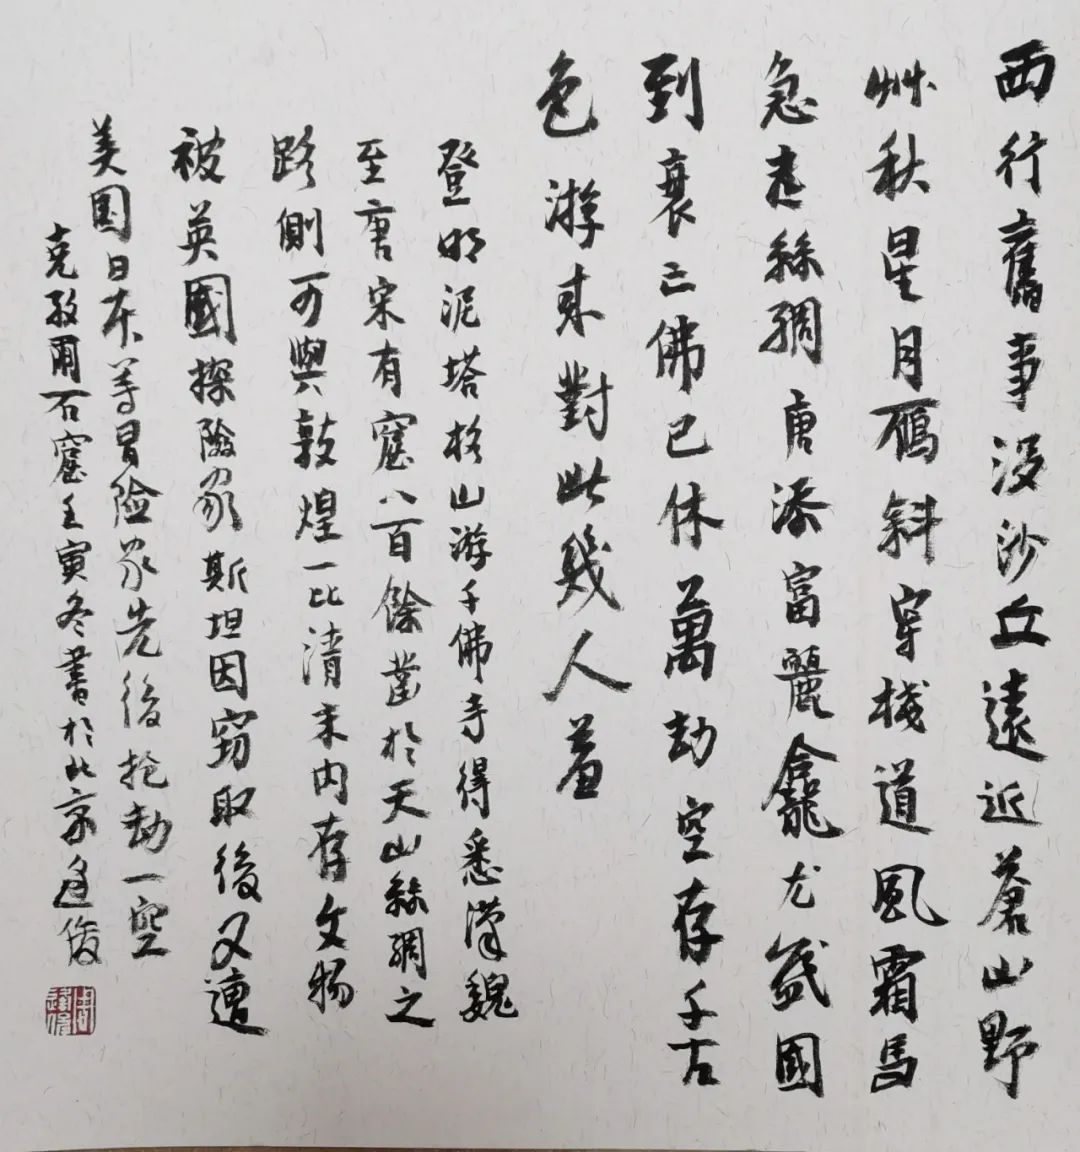 西行舊事沒沙丘遠近蒼山野
艸秋星月鴈斜穿棧道風霜馬
急走絲綢唐添富麗龕尤盛國
到衰亡佛已休萬劫空存千古
色游來對此幾人羞
登明泥塔格山游千佛寺得悉漢魏
至唐宋有窟八百餘凿於天山絲綢之
路側可與敦煌一比清末内存文物
被英國探險家斯坦因窃取後又遭
美国日本等冒险家先後抢劫一空
克孜爾石窟壬寅冬書於北京逢俊
周逢俊